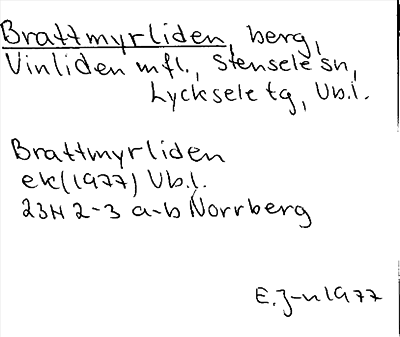 Brattmyrliden, berg,
Vinliden mfl., Stensele sn,
Lycksele tg, Vb.l.
Brattmyrliden
ek (1977) Vb.l.
23H 2-3 a-b Norrberg
E.J-n 1977